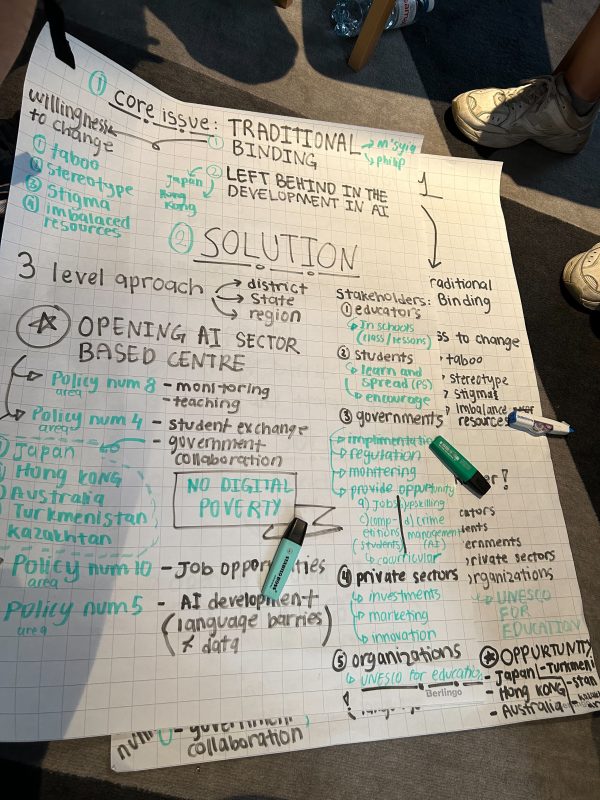 ① core issue:
① TRADITIONAL BINDING
→ m'syia
↳ philip
② LEFT BEHIND IN THE DEVELOPMENT IN AI
Japan
Hong Kong
willingness
to change
① taboo
② stereotype
③ stigma
④ imbalaced
resources
② SOLUTION
3 level aproach
→ district
→ state
→ region
OPENING AI SECTOR
BASED CENTRE
Policy num 8
area
- monitoring
- teaching
Policy num 4
area
- student exchange
- government
collaboration
Japan
Hong Kong
Australia
Turkmenistan
Kazakhtan
NO DIGITAL
POVERTY
Policy num 10
area
- Job opportunities
Policy num 5
area
- AI development
(language barries
data)
Stakeholders:
① educators
↳ In schools
(class/lessons)
② students
↳ learn and
spread (PS)
↳ encourage
③ governments
↳ implimentatio
↳ regulation
↳ monitering
↳ provide oppurtunity
a) Jobs
upskilling
c) comp-
etitions
(students)
d) crime
management
(AI)
↳ curricular
④ private sectors
↳ investments
↳ marketing
↳ innovation
⑤ organizations
↳ UNESCO for education
Berlingo
1
raditional
Binding
ss to change
taboo
stereotype
stigma
imbalance
resources
cators
ents
ernments
private sectors
organizations
↳ UNESCO
FOR
EDUCATION
OPPURTUNITY
- Japan
- Turkmeni
stan
- Hong Kong
- Australia
num
- government
collaboration